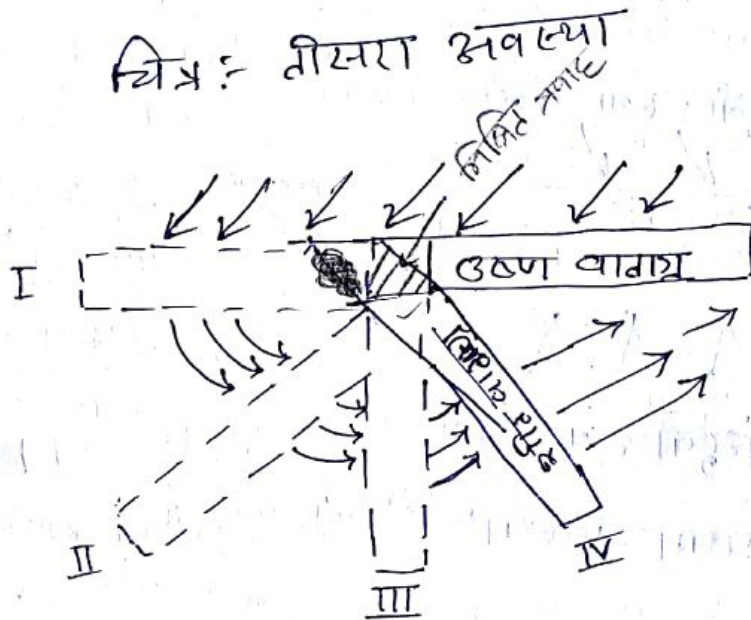 चित्र :- तीसरा अवस्था
मिश्रित प्रवाह
I
उष्ण वाताग्र
शीत वाताग्र
II
III
IV